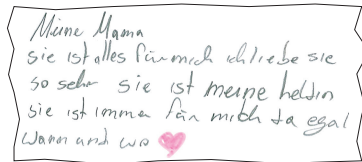 Meine Mama
sie ist alles für mich ich liebe sie
so sehr sie ist meine heldin
sie ist immer für mich da egal
wann und wo